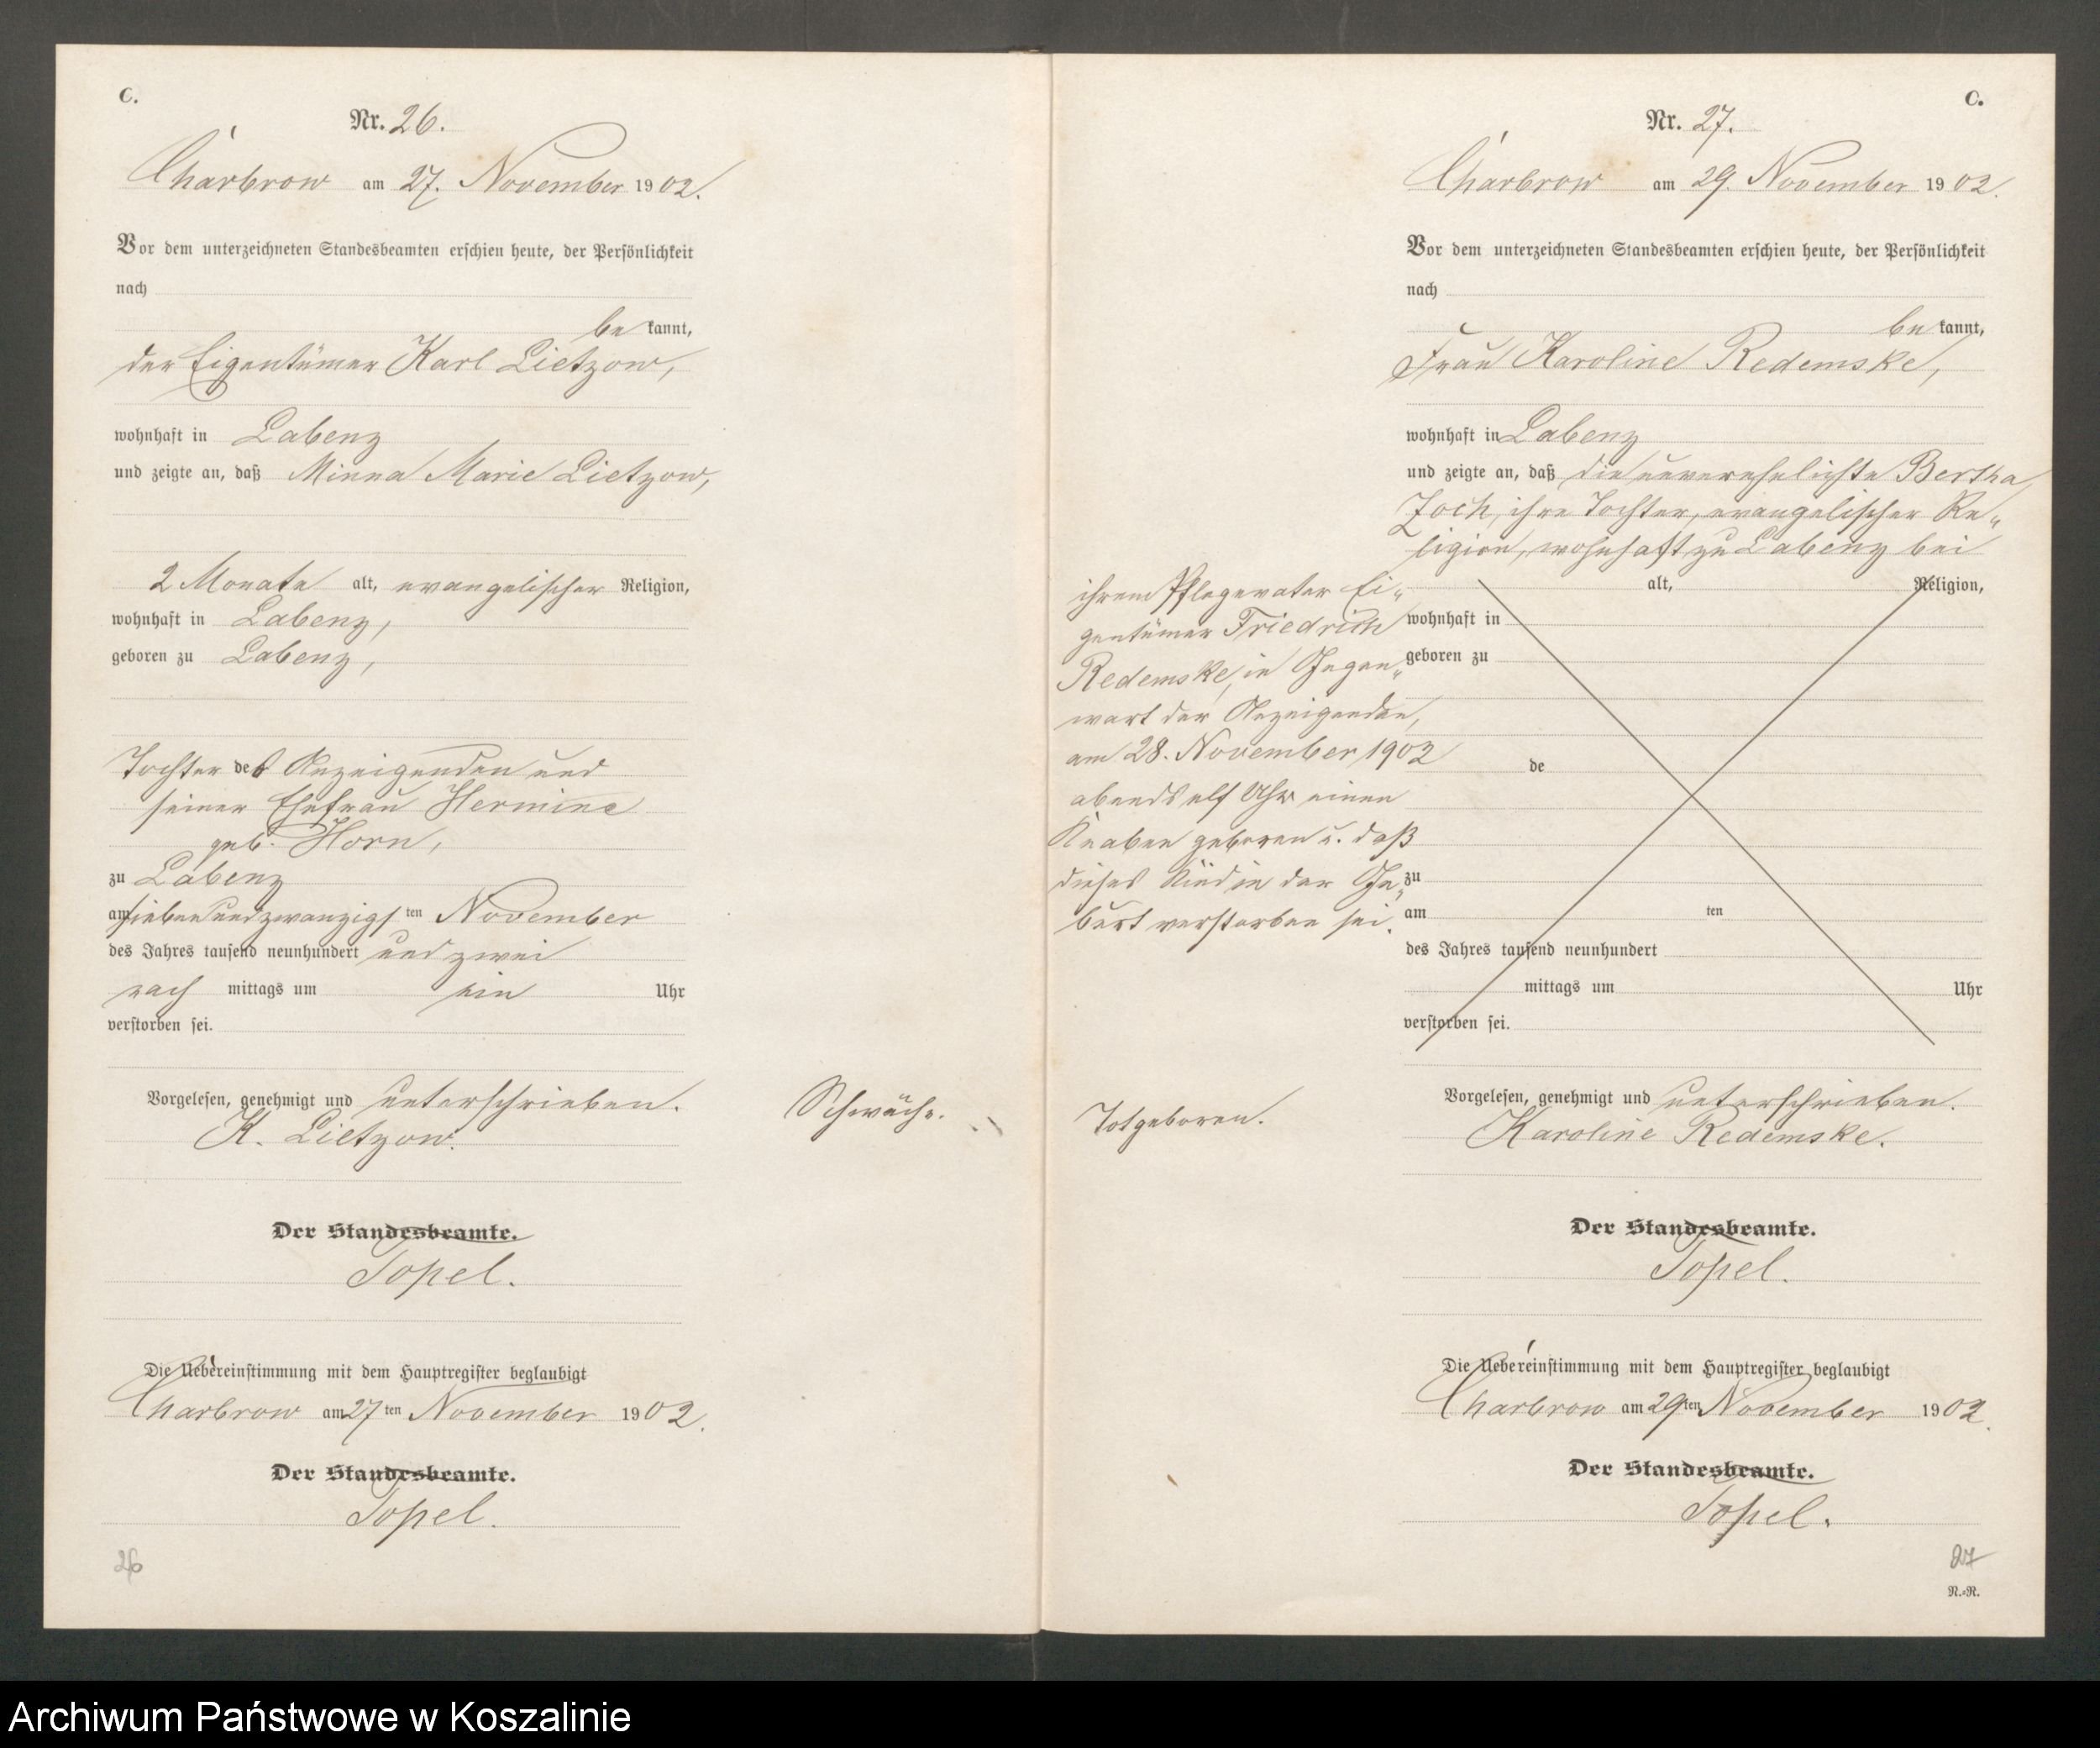 C.
Nr. 26.
Charbrow am 27. November 1902.
Vor dem unterzeichneten Standesbeamten erschien heute, der Persönlichkeit
nach
bekannt,
der Eigentümer Karl Lietzow,
wohnhaft in Labenz
und zeigte an, daß Minna Marie Lietzow,
2 Monate alt, evangelischer Religion,
wohnhaft in Labenz,
geboren zu Labenz,
Tochter des Anzeigenden und
seiner Ehefrau Hermine
geb. Horn,
zu Labenz
am siebenundzwanzigsten November
des Jahres tausend neunhundert und zwei
nach mittags um ein Uhr
verstorben sei.
Vorgelesen, genehmigt und unterschrieben.
K. Lietzow.
Schwäche.
Der Standesbeamte.
Topel.
Die Uebereinstimmung mit dem Hauptregister beglaubigt
Charbrow am 27ten November 1902.
Der Standesbeamte.
Topel.
26
C.
Nr. 27.
Charbrow am 29. November 1902.
Vor dem unterzeichneten Standesbeamten erschien heute, der Persönlichkeit
nach
bekannt,
Frau Karoline Redemske,
wohnhaft in Labenz
und zeigte an, daß die unverehelichte Bertha
Zoch, ihre Tochter, evangelischer Re-
ligion, wohnhaft zu Labenz bei
ihrem Pflegevater Ei-
gentümer Friedrich
Redemske, in Gegen-
wart der Anzeigenden,
am 28. November 1902
abends elf Uhr einen
Knaben geboren u. daß
dieses Kind in der Ge-
burt verstorben sei.
alt, Religion,
wohnhaft in
geboren zu
de
zu
am ten
des Jahres tausend neunhundert
mittags um Uhr
verstorben sei.
Totgeboren.
Vorgelesen, genehmigt und unterschrieben.
Karoline Redemske.
Der Standesbeamte.
Topel.
Die Uebereinstimmung mit dem Hauptregister beglaubigt
Charbrow am 29ten November 1902.
Der Standesbeamte.
Topel.
27
N.-R.
Archiwum Państwowe w Koszalinie